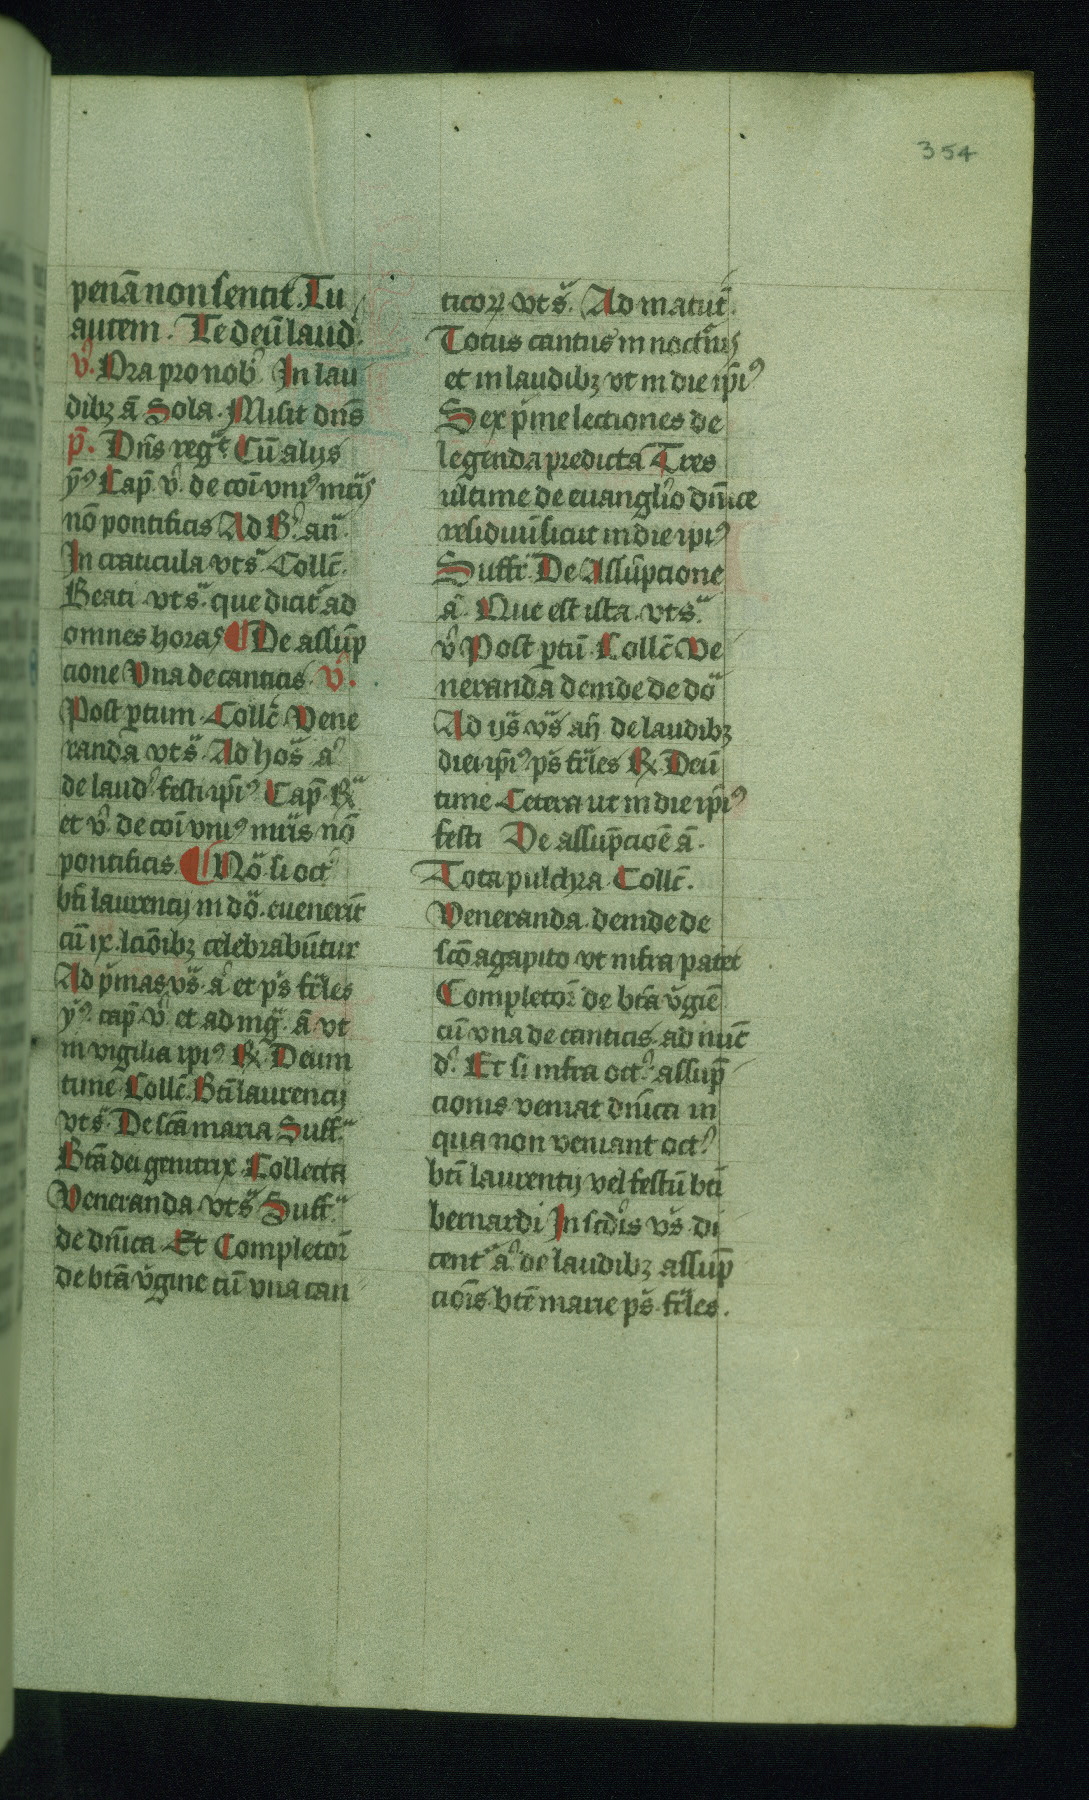 354
penā non sentit. Tu
autem. Te deū laud.
v̉. Ora pro nob̉ In lau
dibꝫ ā Sola. Misit dn̄s
p̄. Dn̄s reg̉t Cū alijs
ȳꝰ Cap̄ v̉ de coī vniꝰ mr̄is
nō pontificis Ad B̉. an̄.
In craticula vts̄ Collc̄.
Beati vts̄. que dicit̉ ad
omnes horas De assūp
cione Vna de canticis. v̉.
Post ꝑtum. Collc̄ Vene
randa vts̄. Ad hos̄ a̓
de laud̉ festi ip̄iꝰ Cap̄ ꝶ
et v̉ de coī vniꝰ mr̄is nō
pontificis. Nō si oct̉
bt̄i laurencij in dō. euenerit̄
cū ix. lcōibꝫ celebrabūtur
Ad p̓mas vs̄. a̓ et ps̄ fr̄les
ȳꝰ. cap̄. v̉ et ad mḡ. ā vt
in vigilia ipiꝰ ꝶ Deum
time Collc̄. Bt̄i laurencij
vts̄. De sc̄a maria Suff.
Bt̄a dei genitrix Collecta
Veneranda vts̄ Suff.
de dn̄ica Et Completor̄
de bt̄a v̓gine cū vna can
ticoꝝ vts̄. Ad matut̄.
Totus cantus in noct̄nis
et in laudibꝫ vt in die ip̄iꝰ
Sex p̓me lectiones de
legenda predicta Tres
vltime de euangl̓io dn̄ice
residuū sicut in die ipiꝰ
Suffr̄. De Assūpcione
ā. Que est ista. vts̄
v̉ Post ꝑtū. Collc̄ Ve
neranda deinde de dō
Ad ijs̄ vs̄ an̄ de laudibꝫ
diei ip̄iꝰ ps̄ fr̄les ꝶ. Deū
time. Cetera ut in die ip̄iꝰ
festi De assūpcioē ā.
Tota pulchra. Collc̄.
Veneranda. deinde de
sc̄o agapito vt infra patet
Completor̄ de bt̄a v̓gīe
cū vna de canticis. ad nūc
d̉. Et si infra oct̉. assup̄
cionis veniat dn̄ica in
qua non veniant oct̉
bt̄i laurentij vel festū bt̄i
bernardi In scd̓is vs̄. di
cent̉ a̓ de laudibꝫ assup̄
cioīs. bt̄e marie ps̄. fr̄les.